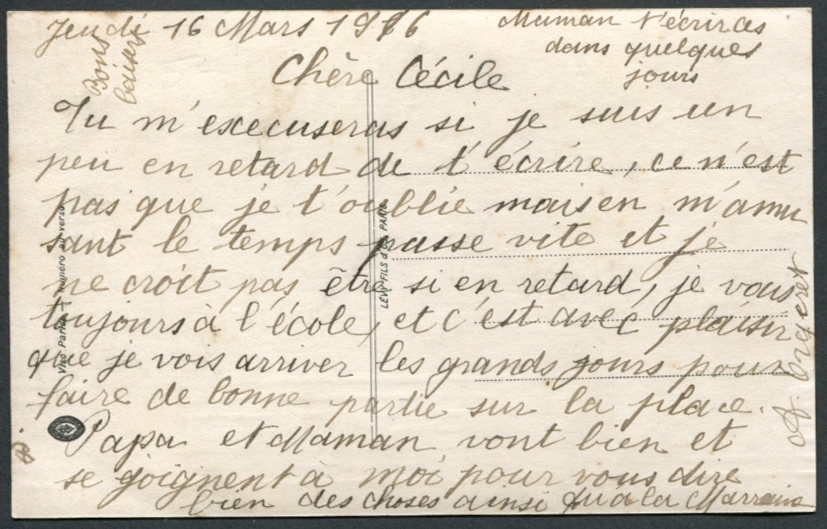 Jeudi 16 Mars 1916
Maman t'écriras
dans quelques
jours
Bons
baisers
Chère Cécile
Tu m'execuseras si je suis un
peu en retard de t'écrire, ce n'est
pas que je t'oublie mais en m'amu
sant le temps passe vite et je
ne croit pas être si en retard, je vous
toujours à l'école, et c'est avec plaisir
que je vois arriver les grands jours pour
faire de bonne partie sur la place.
Papa et Maman vont bien et
se joignent à moi pour vous dire
bien des choses ainsi qu'a la Marraine
A.
Visé Paris numéro au verso
LÉVY FILS & Cie PARIS